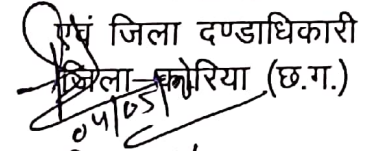 एवं जिला दण्डाधिकारी
जिला-कोरिया (छ.ग.)
04/05/